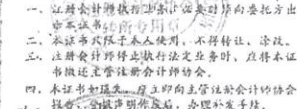 一、注册会计师执行业务，必要时须向委托方出
示本证书。
二、本证书只限于本人使用，不得转让、涂改。
三、注册会计师停止执行法定业务时，应将本证
书缴还主管注册会计师协会。
四、本证书如遗失，应立即向主管注册会计师协会
报告，登报声明作废后，办理补发手续。